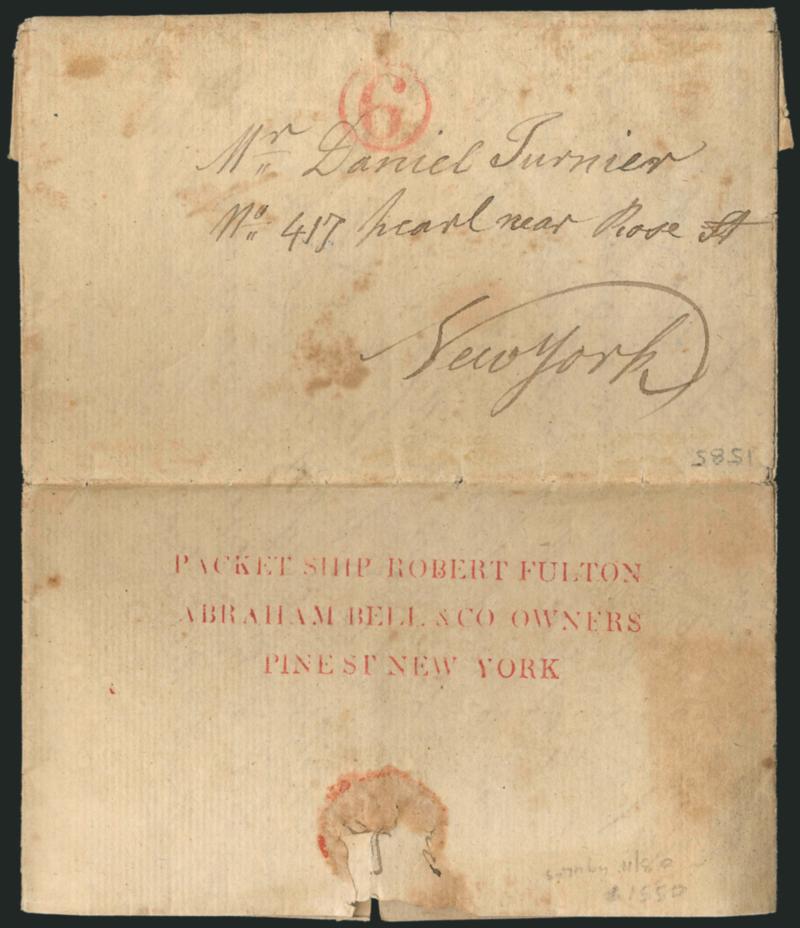 6
Mr Daniel Turnier
No 417 pearl near Rose St
New York
5851
PACKET SHIP ROBERT FULTON
ABRAHAM BELL & CO OWNERS
PINE ST NEW YORK